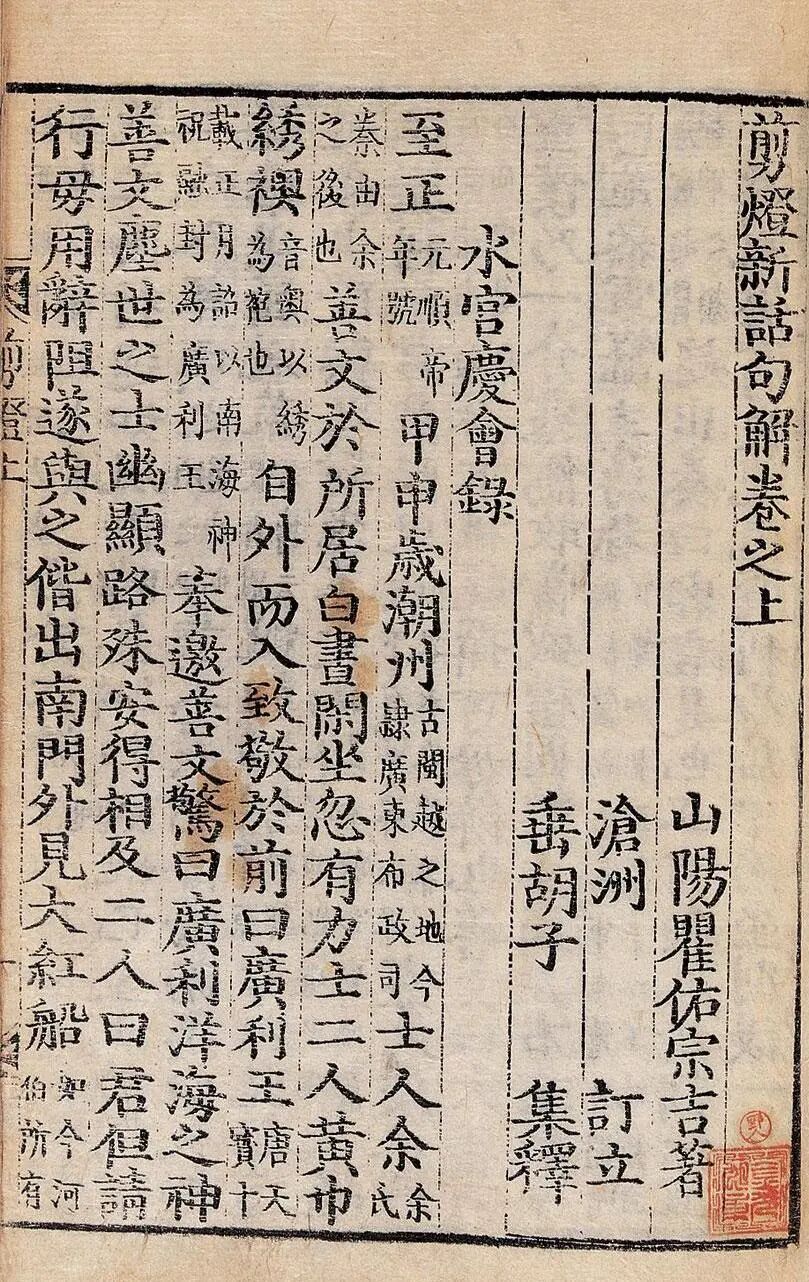 剪燈新話句解卷之上
山陽瞿佑宗吉著
滄洲 訂立
垂胡子 集釋
水宮慶會錄
至正元順帝年號甲申歲潮州古閩越之地今隸廣東布政司士人余余氏
秦由余之後也善文於所居白晝閑坐忽有力士二人黃巾
綉襖音奧以綉為袍也自外而入致敬於前曰廣利王唐天寶十
載正月詔以南海神祝融封為廣利王奉邀善文驚曰廣利洋海之神
善文塵世之士幽顯路殊安得相及二人曰君但請
行毋用辭阻遂與之偕出南門外見大紅船如今河伯所有